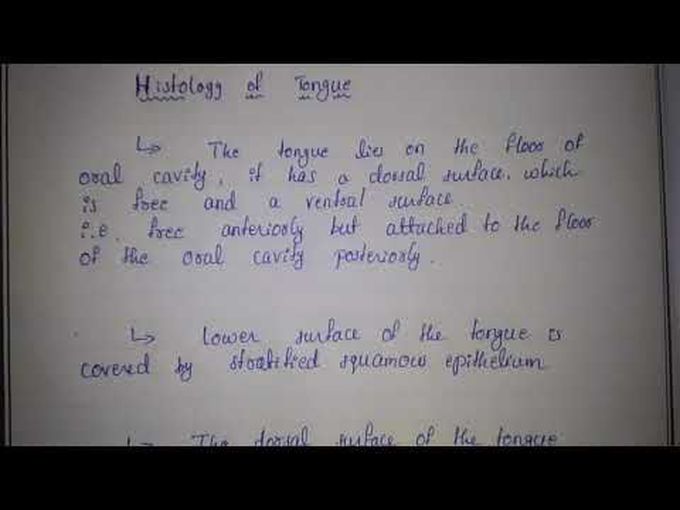 Histology of Tongue
↳ The tongue lies on the floor of
oral cavity, it has a dorsal surface. which
is free and a ventral surface
i.e. free anteriorly but attached to the floor
of the oral cavity posteriorly.
↳ Lower surface of the tongue is
covered by stratified squamous epithelium
↳ The dorsal surface of the tongue